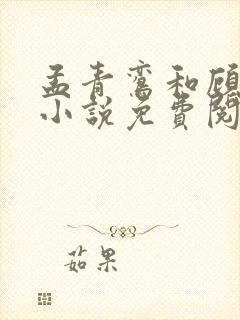 孟青鸾和顾
小説免費閱
茹果